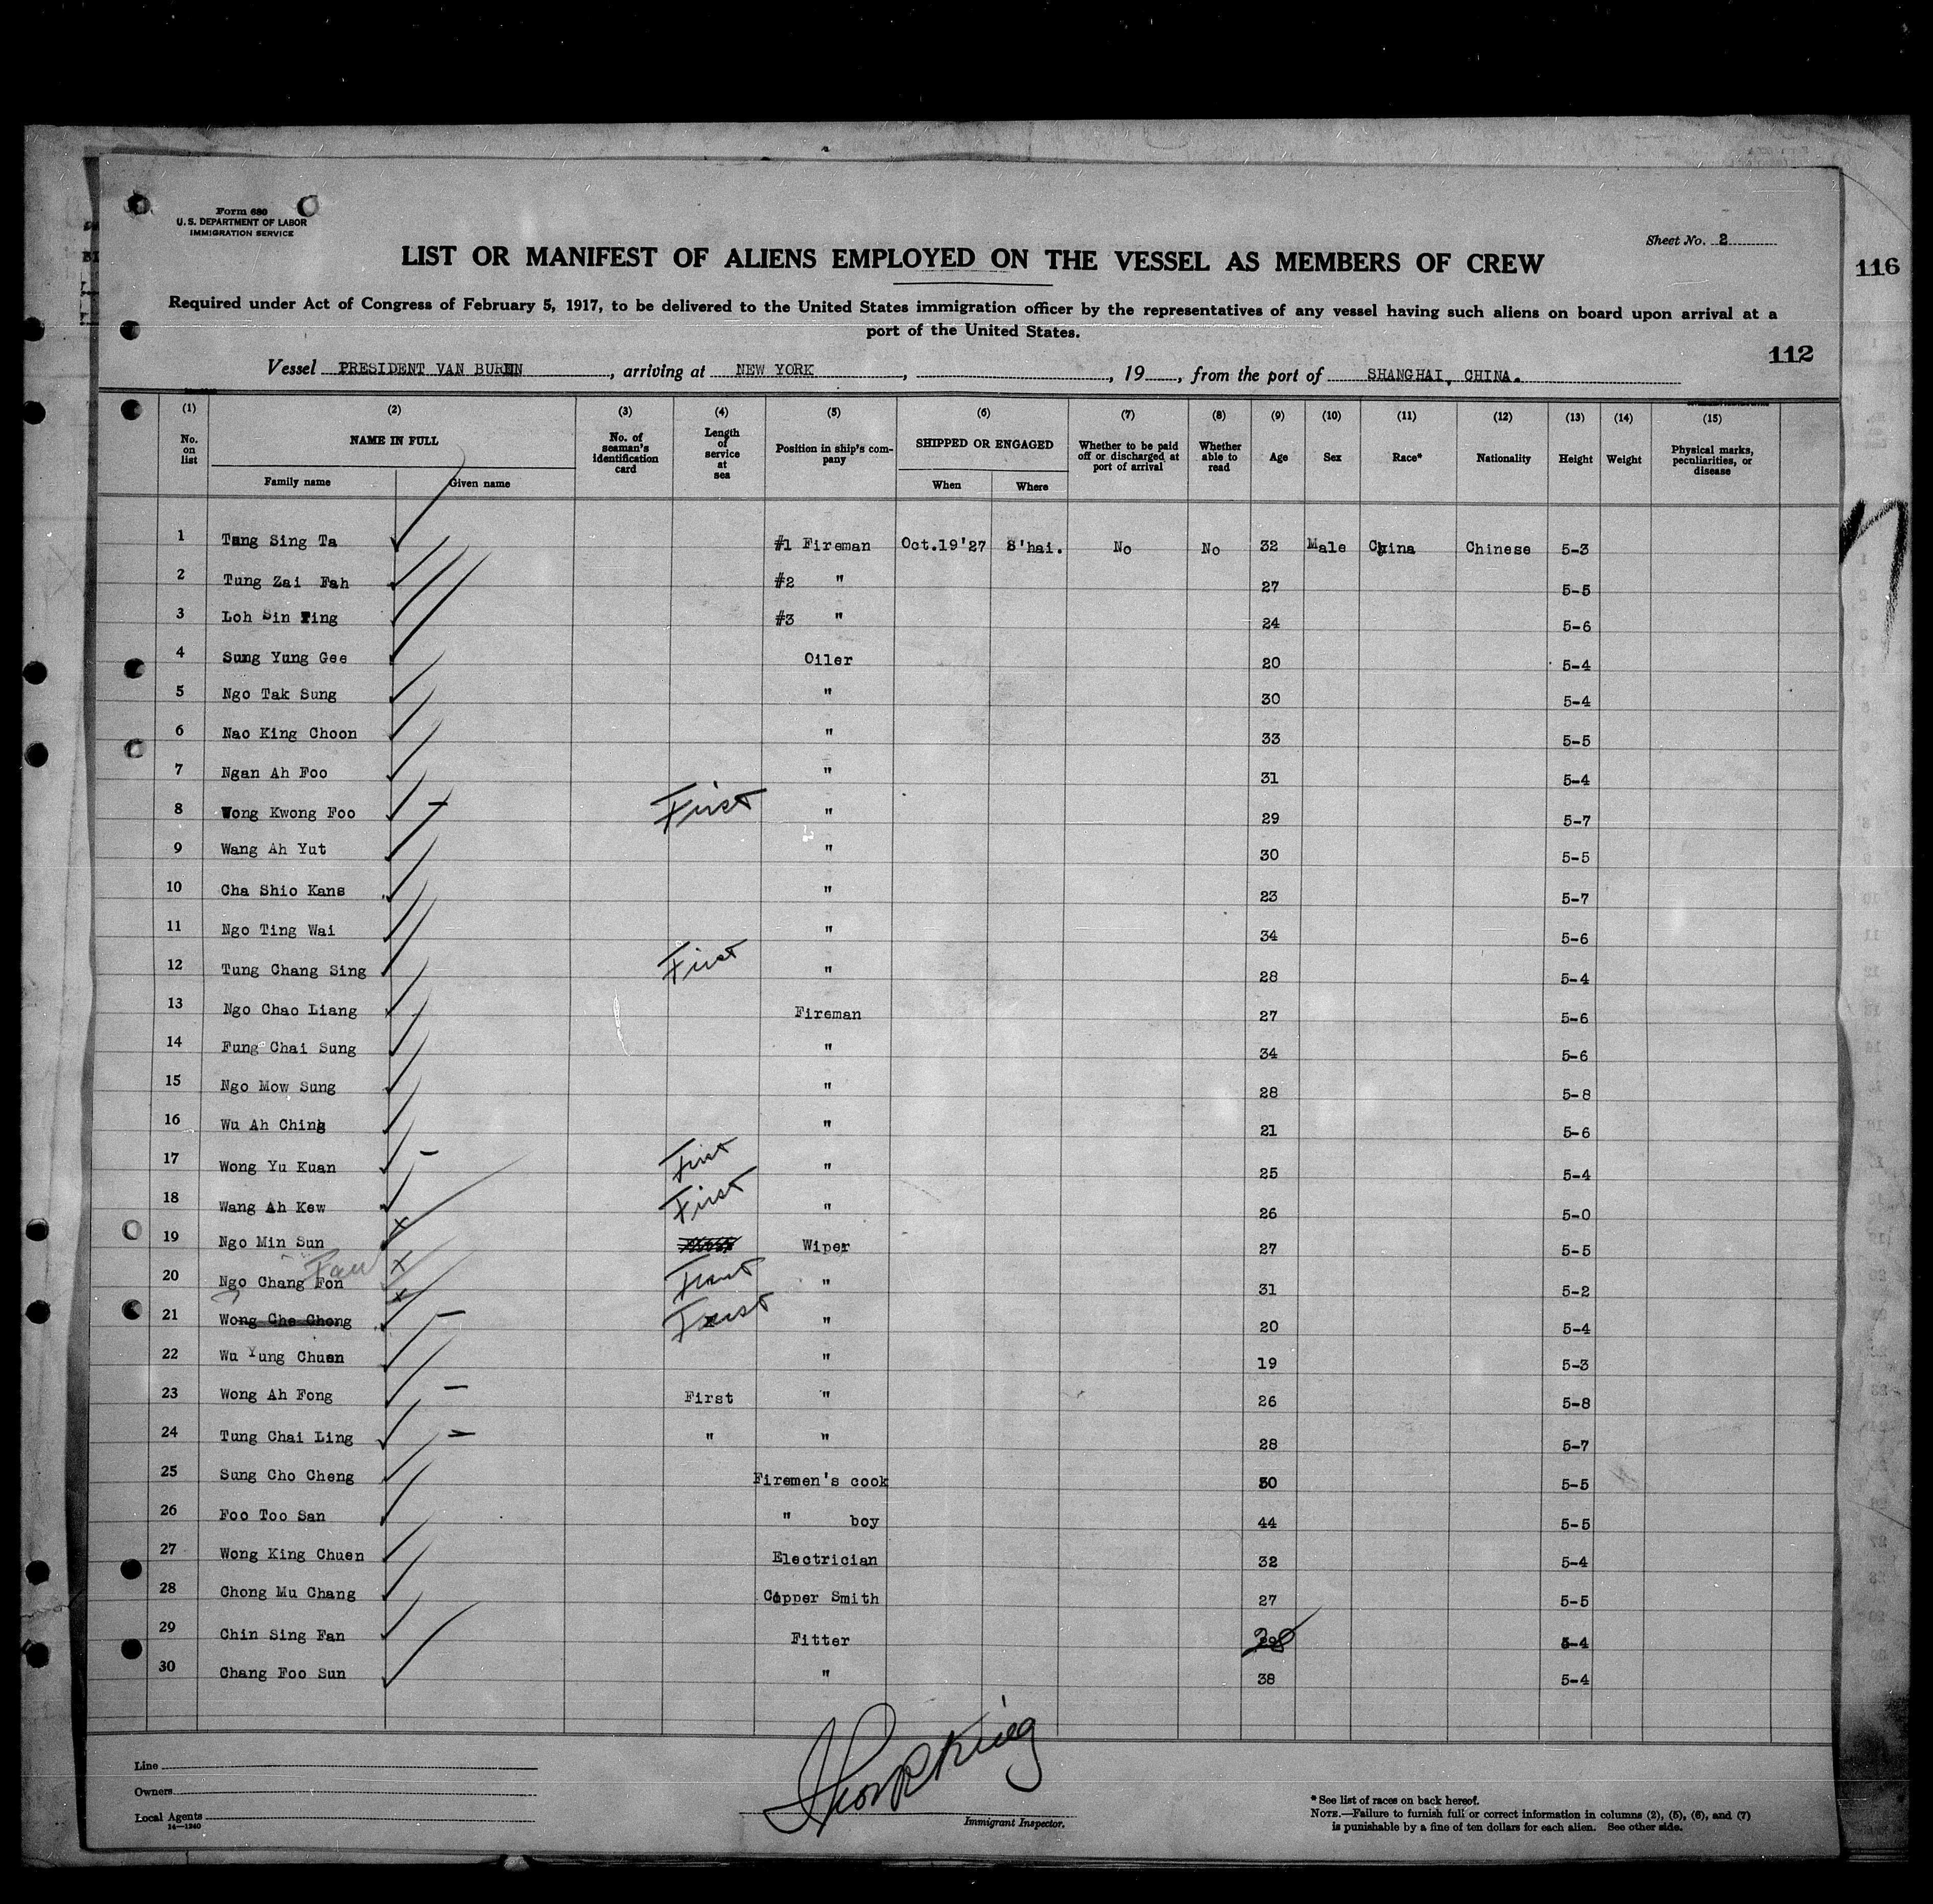 Form 680
U. S. DEPARTMENT OF LABOR
IMMIGRATION SERVICE
Sheet No. 2
LIST OR MANIFEST OF ALIENS EMPLOYED ON THE VESSEL AS MEMBERS OF CREW
116
Required under Act of Congress of February 5, 1917, to be delivered to the United States immigration officer by the representatives of any vessel having such aliens on board upon arrival at a
port of the United States.
112
Vessel PRESIDENT VAN BUREN, arriving at NEW YORK, , 19 , from the port of SHANGHAI, CHINA.
(1) (2) (3) (4) (5) (6) (7) (8) (9) (10) (11) (12) (13) (14) (15)
No. on list NAME IN FULL Family name Given name No. of seaman's identification card Length of service at sea Position in ship's company SHIPPED OR ENGAGED When Where Whether to be paid off or discharged at port of arrival Whether able to read Age Sex Race* Nationality Height Weight Physical marks, peculiarities, or disease
1 Tang Sing Ta #1 Fireman Oct.19'27 S'hai. No No 32 Male China Chinese 5-3
2 Tung Zai Fah #2 " 27 5-5
3 Loh Sin Ting #3 " 24 5-6
4 Sung Yung Gee Oiler 20 5-4
5 Ngo Tak Sung " 30 5-4
6 Nao King Choon " 33 5-5
7 Ngan Ah Foo " 31 5-4
8 Wong Kwong Foo First " 29 5-7
9 Wang Ah Yut " 30 5-5
10 Cha Shio Kans " 23 5-7
11 Ngo Ting Wai " 34 5-6
12 Tung Chang Sing First " 28 5-4
13 Ngo Chao Liang Fireman 27 5-6
14 Fung Chai Sung " 34 5-6
15 Ngo Mow Sung " 28 5-8
16 Wu Ah Ching " 21 5-6
17 Wong Yu Kuan First " 25 5-4
18 Wang Ah Kew First " 26 5-0
19 Ngo Min Sun Wiper 27 5-5
20 Ngo Chang Fon Fau First " 31 5-2
21 Wong Che Chong First " 20 5-4
22 Wu Yung Chuen " 19 5-3
23 Wong Ah Fong First " 26 5-8
24 Tung Chai Ling " " 28 5-7
25 Sung Cho Cheng Firemen's cook 50 5-5
26 Foo Too San " boy 44 5-5
27 Wong King Chuen Electrician 32 5-4
28 Chong Mu Chang Copper Smith 27 5-5
29 Chin Sing Fan Fitter 28 5-4
30 Chang Foo Sun " 38 5-4
Line
Owners
Local Agents
14—1240
Immigrant Inspector.
* See list of races on back hereof.
NOTE.—Failure to furnish full or correct information in columns (2), (5), (6), and (7)
is punishable by a fine of ten dollars for each alien. See other side.